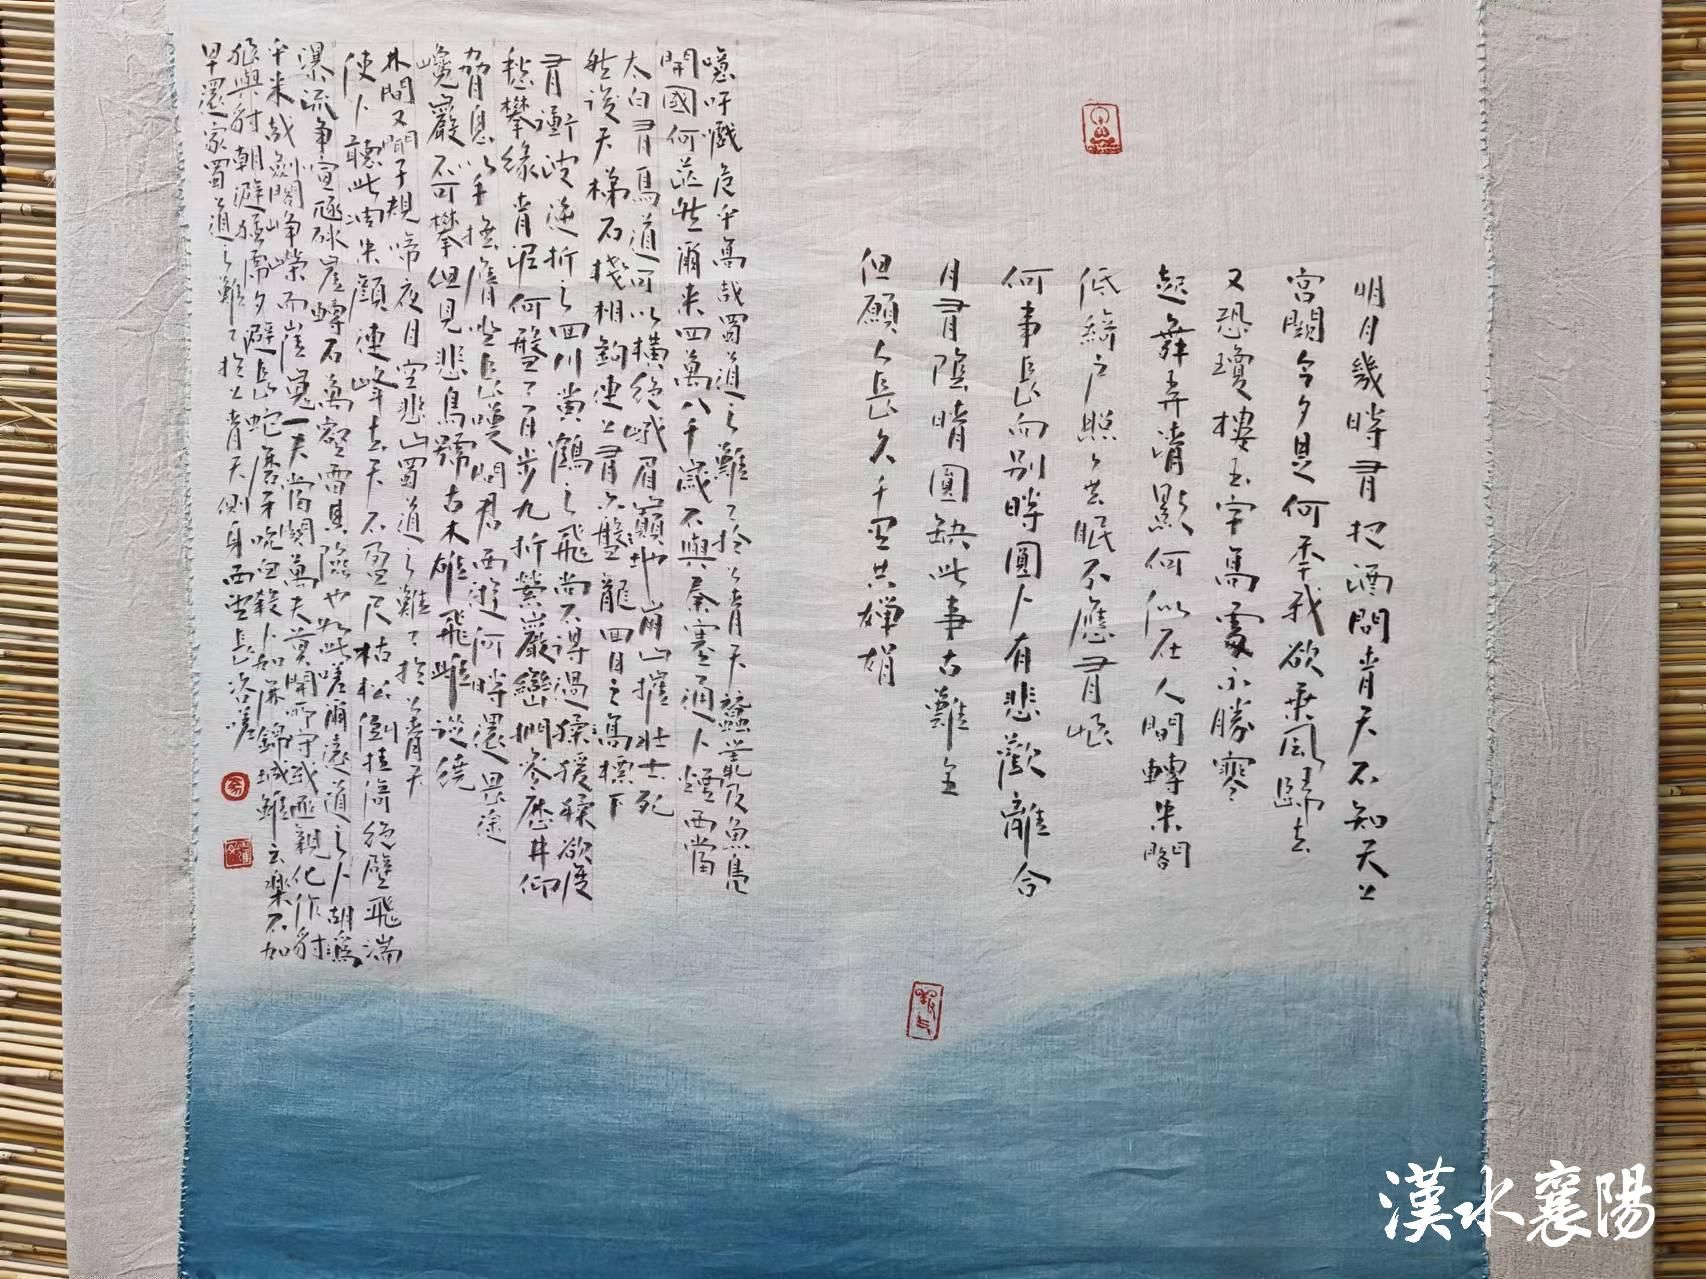 明月幾時有把酒問青天不知天上
宮闕今夕是何年我欲乘風歸去
又恐瓊樓玉宇高處不勝寒
起舞弄清影何似在人間轉朱閣
低綺戶照人無眠不應有恨
何事長向別時圓人有悲歡離合
月有陰晴圓缺此事古難全
但願人長久千里共嬋娟
噫吁戲危乎高哉蜀道之難々於上青天蠶叢及魚鳧
開國何茫然爾來四萬八千歲不與秦塞通人煙西當
太白有鳥道可以橫絕峨眉巔地崩山摧壯士死
然後天梯石棧相鉤連上有六盤龍回日之高標下
有衝波逆折之回川黃鶴之飛尚不得過猱猨猱欲度
愁攀緣青泥何盤々百步九折縈巖巒捫參歷井仰
脅息以手撫膺坐長嘆問君西遊何時還畏途
巉巖不可攀但見悲鳥號古木雄飛雌從繞
林間又聞子規啼夜月空悲山蜀道之難々於上青天
使人聽此凋朱顏連峰去天不盈尺枯松倒挂倚絕壁飛湍
瀑流爭喧豗砯崖轉石萬壑雷其險也如此嗟爾遠道之人胡為
乎來哉劍閣崢嶸而崔嵬一夫當關萬夫莫開所守或匪親化作豺
狼與豺朝避猛虎夕避長蛇磨牙吮血殺人如麻錦城雖云樂不如
早還家蜀道之難々於上青天側身西望長咨嗟
漢水襄陽